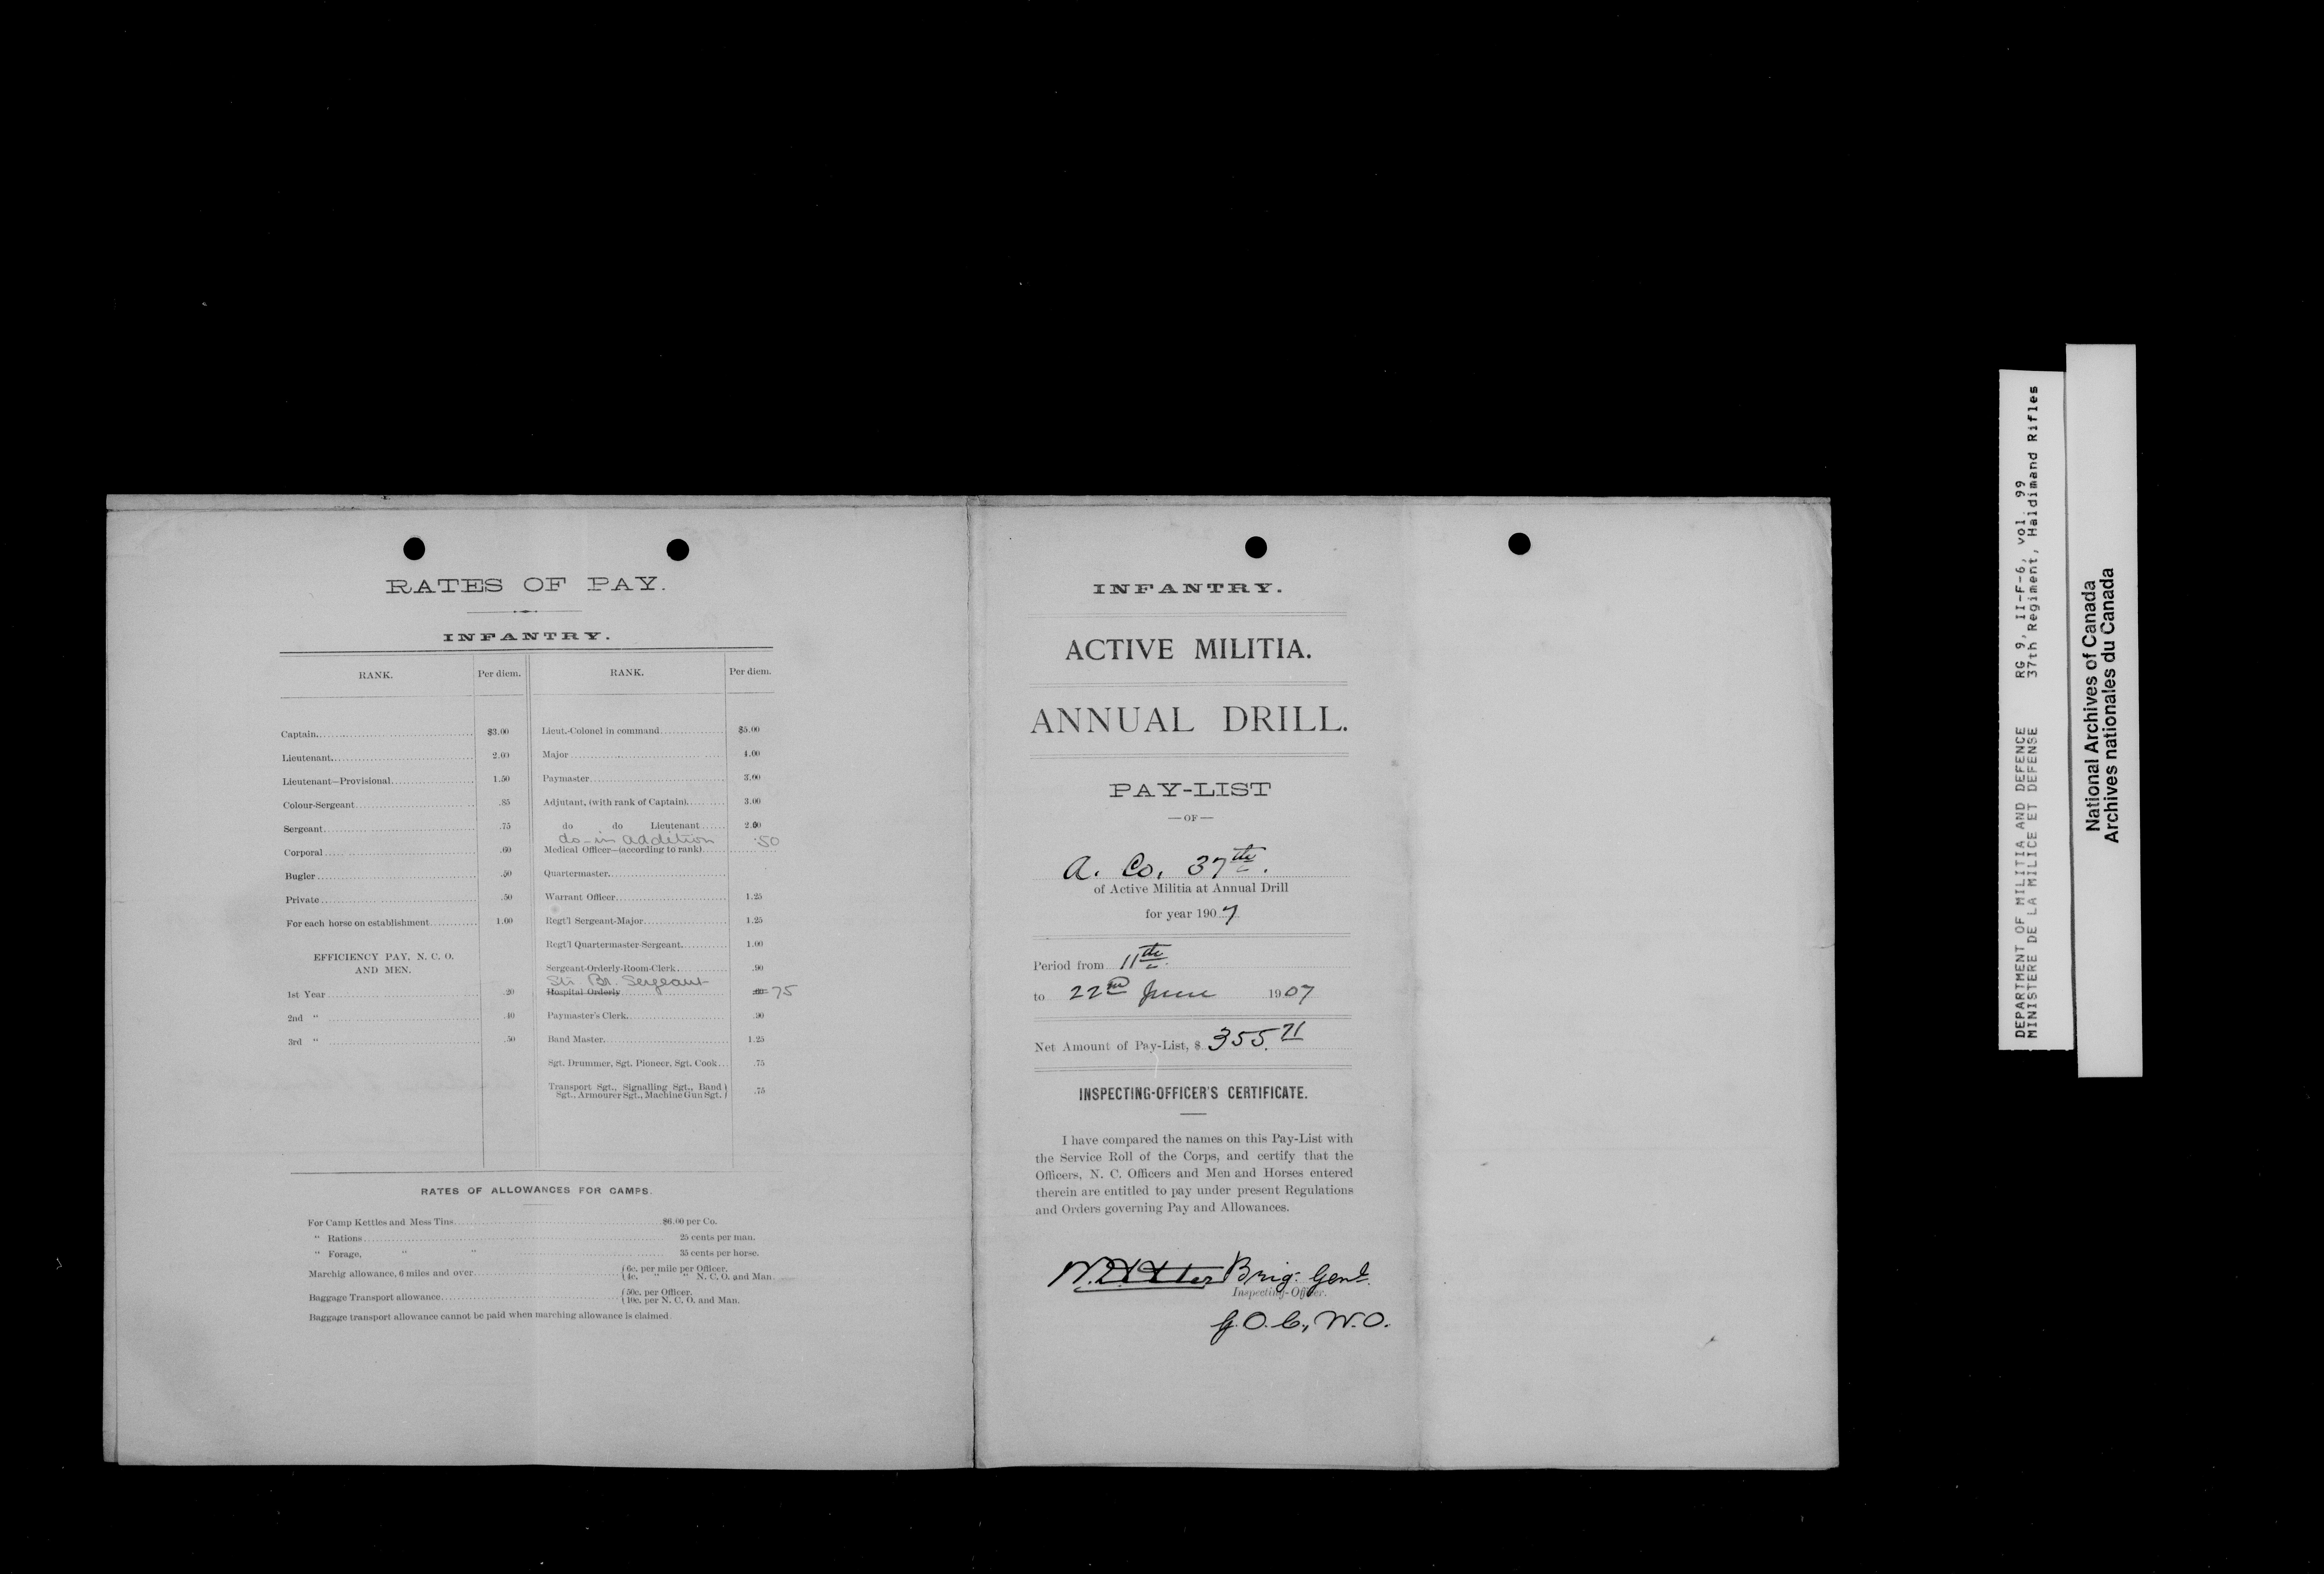 RATES OF PAY.
INFANTRY.
RANK. Per diem. RANK. Per diem.
Captain $3.00 Lieut.-Colonel in command $5.00
Lieutenant 2.00 Major 4.00
Lieutenant—Provisional 1.50 Paymaster 3.00
Colour-Sergeant .85 Adjutant, (with rank of Captain) 3.00
Sergeant .75 do do Lieutenant 2.00
do - in addition .50
Corporal .60 Medical Officer—(according to rank)
Bugler .50 Quartermaster
Private .50 Warrant Officer 1.25
For each horse on establishment 1.00 Regt'l Sergeant-Major 1.25
Regt'l Quartermaster-Sergeant 1.00
EFFICIENCY PAY, N. C. O.
AND MEN.
Sergeant-Orderly-Room-Clerk .90
Br. Sergeant
1st Year .20 Hospital Orderly 75
2nd " .40 Paymaster's Clerk .90
3rd " .50 Band Master 1.25
Sgt. Drummer, Sgt. Pioneer, Sgt. Cook .75
Transport Sgt., Signalling Sgt., Band
Sgt., Armourer Sgt., Machine Gun Sgt. .75
RATES OF ALLOWANCES FOR CAMPS.
For Camp Kettles and Mess Tins $6.00 per Co.
" Rations 25 cents per man.
" Forage, " " 35 cents per horse.
Marchig allowance, 6 miles and over 6c. per mile per Officer.
4c. " " N. C. O. and Man
Baggage Transport allowance 50c. per Officer.
10c. per N. C. O. and Man.
Baggage transport allowance cannot be paid when marching allowance is claimed.
INFANTRY.
ACTIVE MILITIA.
ANNUAL DRILL.
PAY-LIST
—OF—
A. Co. 37th.
of Active Militia at Annual Drill
for year 1907
Period from 11th
to 22nd June 1907
Net Amount of Pay-List, $ 355.71
INSPECTING-OFFICER'S CERTIFICATE.
I have compared the names on this Pay-List with
the Service Roll of the Corps, and certify that the
Officers, N. C. Officers and Men and Horses entered
therein are entitled to pay under present Regulations
and Orders governing Pay and Allowances.
Brig. Genl.
Inspecting-Officer.
G.O.C., W.O.
DEPARTMENT OF MILITIA AND DEFENCE RG 9, II-F-6, vol. 99
MINISTERE DE LA MILICE ET DEFENSE 37th Regiment, Haldimand Rifles
National Archives of Canada
Archives nationales du Canada